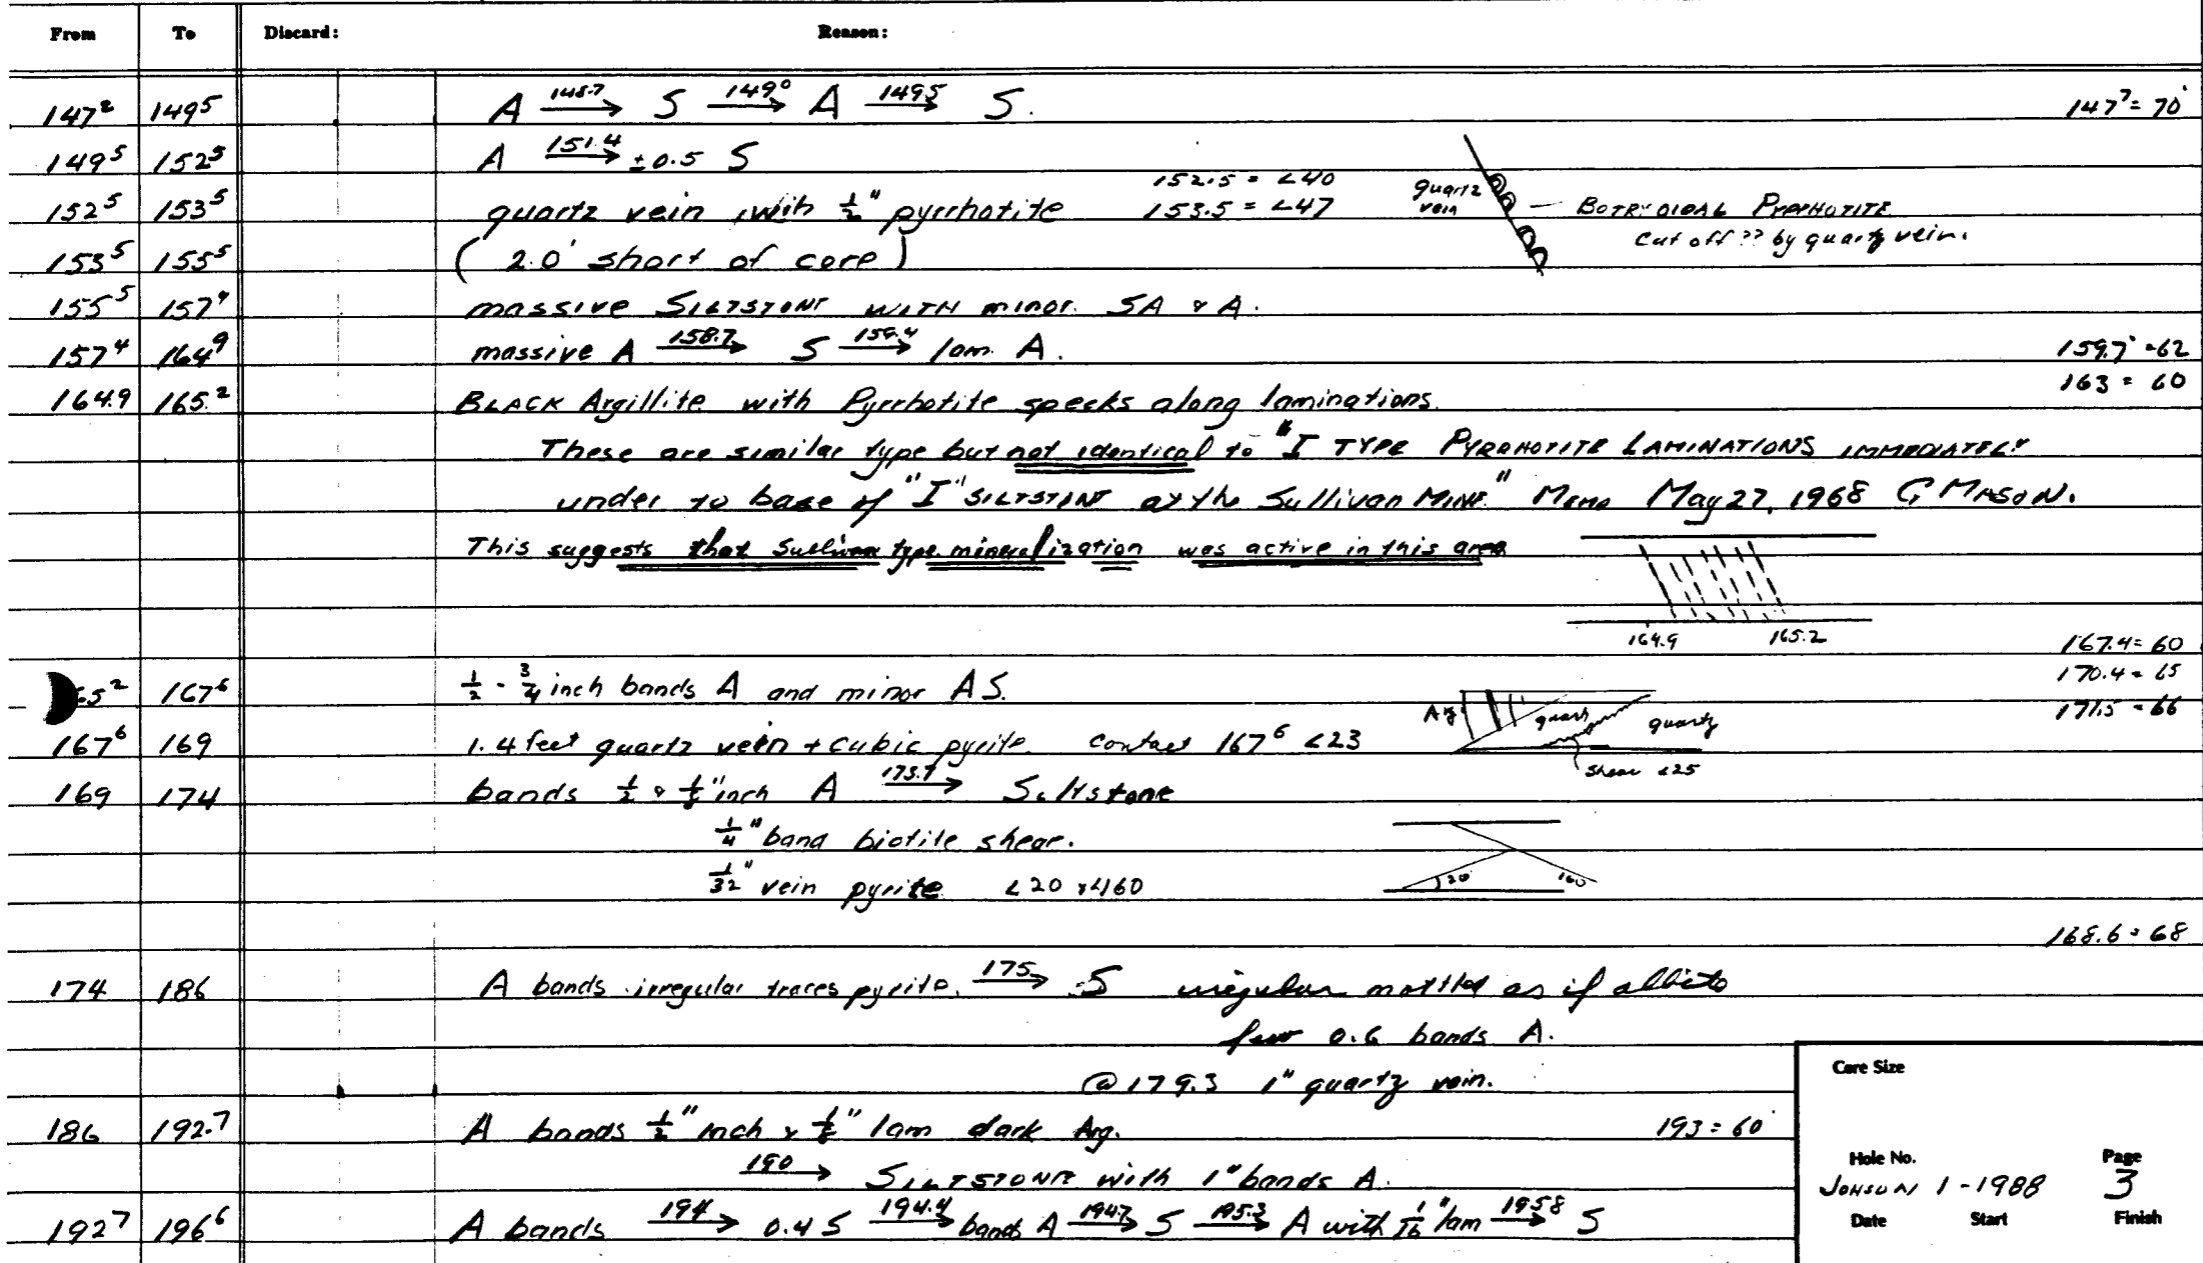 From To Discard: Reason:
147² 149⁵ A 148.7→ S 149⁰→ A 149⁵→ S. 147⁷= 70°
149⁵ 152⁵ A 151.4→ ±0.5 S
152.5 = ∠40
152⁵ 153⁵ quartz vein with ½" pyrrhotite 153.5 = ∠47 quartz vein — BOTRYOIDAL PYRRHOTITE
cut off?? by quartz vein.
153⁵ 155⁵ ( 2.0' short of core )
155⁵ 157⁴ massive SILTSTONE WITH minor SA & A.
157⁴ 164⁹ massive A 158.7→ S 159.4→ lam. A. 159.7 = 62
163 = 60
164.9 165.² BLACK Argillite with Pyrrhotite specks along laminations.
These are similar type but not identical to "I TYPE PYRRHOTITE LAMINATIONS IMMEDIATELY
under to base of "I" SILTSTONE at the Sullivan MINE." MEMO May 27, 1968 G MASON.
This suggests that Sullivan type mineralization was active in this area
164.9 165.2
167.4= 60
170.4 = 65
65² 167⁶ ½ - ¾ inch bands A and minor AS. 171.5 = 66
Arg. quartz quartz
167⁶ 169 1.4 feet quartz vein + cubic pyrite. contact 167⁶ ∠23
shear ∠25
169 174 bands ½ & inch A 173.7→ Siltstone
¼" band biotite shear.
1/32" vein pyrite ∠20 & ∠160 20 160
168.6 = 68
174 186 A bands irregular traces pyrite. 175→ S irregular mottled as if albite
few 0.6 bands A.
@ 179.3 1" quartz vein.
186 192.7 A bands ½" inch & lam dark Arg. 193 = 60
190→ SILTSTONE with 1" bands A.
192⁷ 196⁶ A bands 194→ 0.4 S 194.4→ bands A 194.7→ S 195.3→ A with 1/16" lam 195⁸→ S
Core Size
Hole No. Page
JOHSON 1-1988 3
Date Start Finish